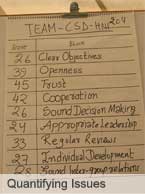 TEAM-CSD-HNL204
SCORE BLOCK
26 Clear Objectives
39 Openness
45 Trust
42 Cooperation
26 Sound Decision Making
24 Appropriate Leadership
33 Regular Reviews
27 Individual Development
28 Sound Inter-group relations
Quantifying Issues